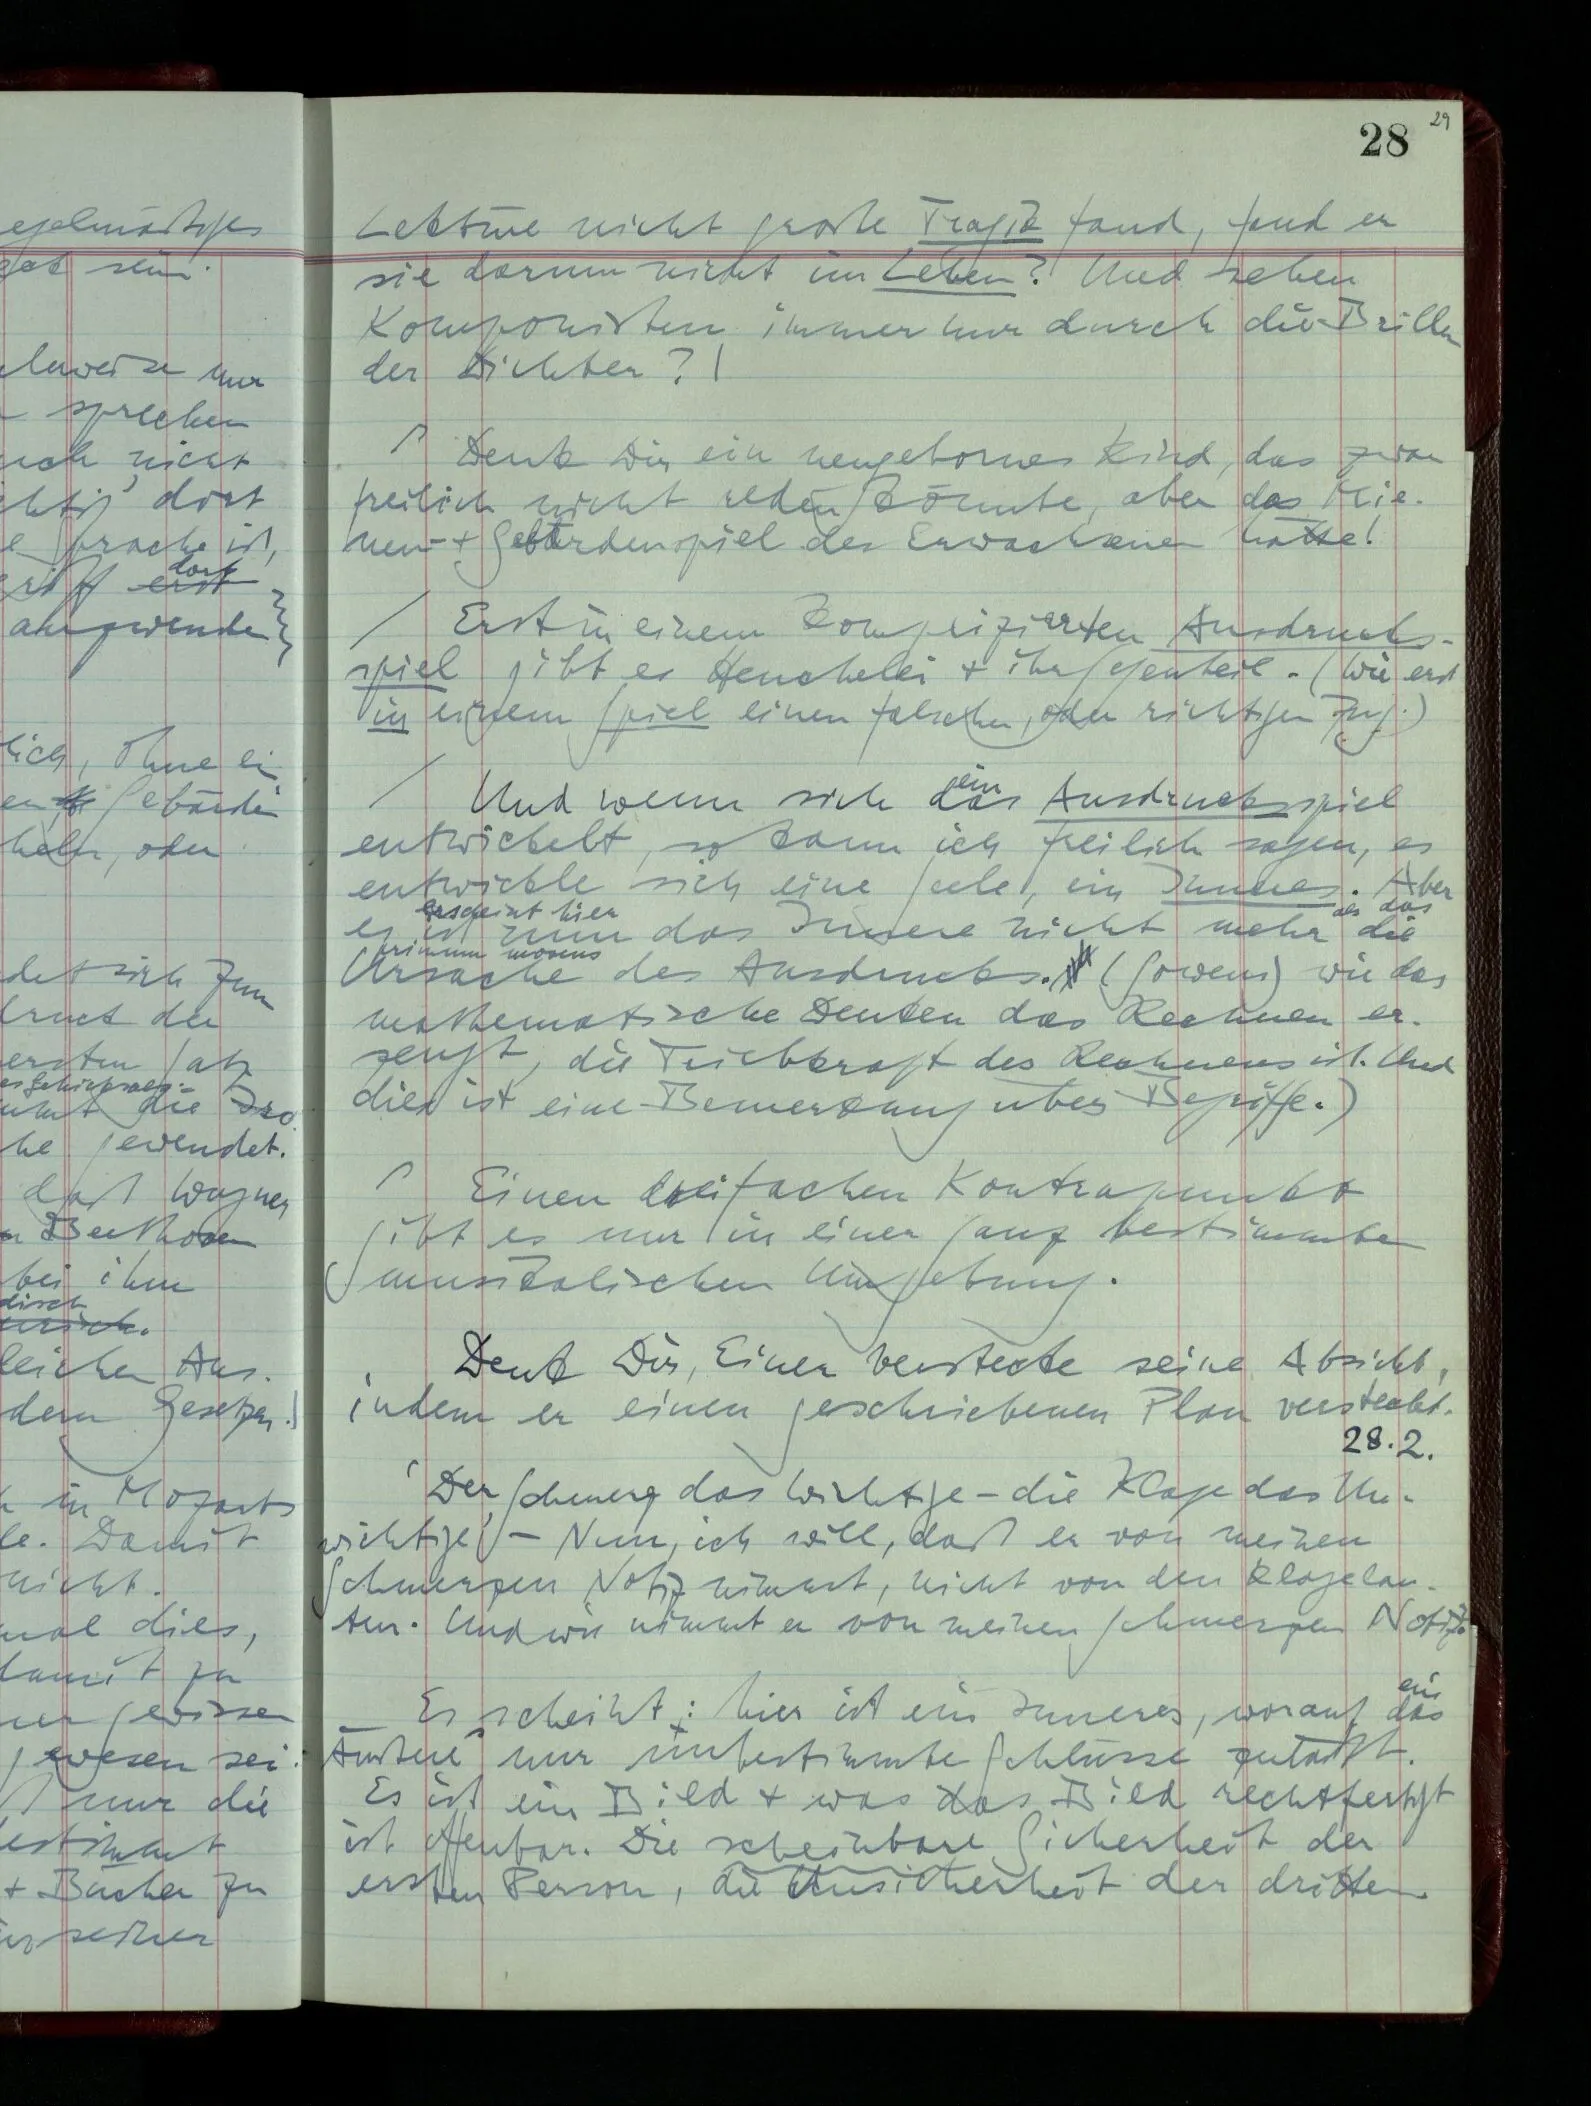 28 29
egelmäßiges
gab sein.
nur
sprechen
nicht
dort
e Sprache ist,
dort
griff erst
anzuwenden
lich, ohne ein
en Gebärden
heln, oder
det sich zum
druck der
ersten Satz
die Iro
he gewendet.
daß Wagner
n Beethoven
bei ihm
disch
leichen Aus-
dern Gesetzen.)
in Mozarts
le. Damit
nicht.
mal dies,
damit zu
ner gewissen
gewesen sei:
nur die
bestimmt
+ Bücher zu
seiner
Lektüre nicht große Tragik fand, fand er
sie darum nicht im Leben? Und sehen
Komponisten immer nur durch die Brillen
der Dichter?)
Denk Dir ein neugebornes Kind, das zwar
freilich nicht reden könnte, aber das Mie-
nen- + Gebärdenspiel des Erwachsenen hätte!
/ Erst in einem komplizierten Ausdrucks-
spiel gibt es Heuchelei + ihr Gegenteil. (Wie erst
in einem Spiel einen falschen, oder richtigen Zug.)
/ Und wenn sich das ein Ausdrucksspiel
entwickelt, so kann ich freilich sagen, es
entwickle sich eine Seele, ein Inneres. Aber
erscheint hier als das
es ist nun das Innere nicht mehr die
primum movens
Ursache des Ausdrucks. (Sowenig wie das
mathematische Denken das Rechnen er-
zeugt, die Triebkraft des Rechnens ist. Und
dies ist eine Bemerkung über Begriffe.)
Einen dreifachen Kontrapunkt
gibt es nur in einer ganz bestimmten
musikalischen Umgebung.
Denk Dir, Einer versteckte seine Absicht,
indem er einen geschriebenen Plan versteckt.
28.2.
'Der Schmerz das Wichtige – die Klage das Un-
wichtige' – Nun, ich will, daß er von meinen
Schmerzen Notiz nimmt, nicht von den Klagelau-
ten. Und wie nimmt er von meinen Schmerzen Notiz?
ein
Es scheint: hier ist ein Inneres, worauf das
Äußere nur unbestimmte Schlüsse zuläßt.
Es ist ein Bild + was das Bild rechtfertigt
ist offenbar. Die scheinbare Sicherheit der
ersten Person, die Unsicherheit der dritten.